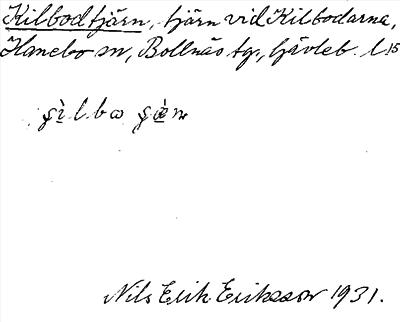 Kilbodtjärn, tjärn vid Kilbodarna,
Hanebo sn, Bollnäs tg., Gävleb. l. 15
Nils Erik Eriksson 1931.